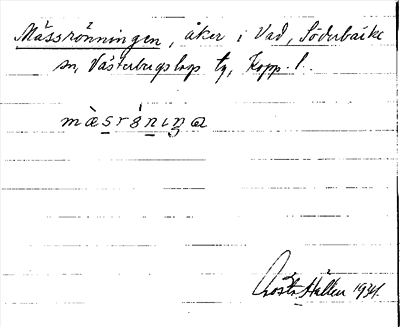 Mässrönningen, åker i Vad, Söderbärke
sn, Västerbergslag tg, Kopp. l.
màsrȯ́nıŋa
Gösta Hallén 1934.